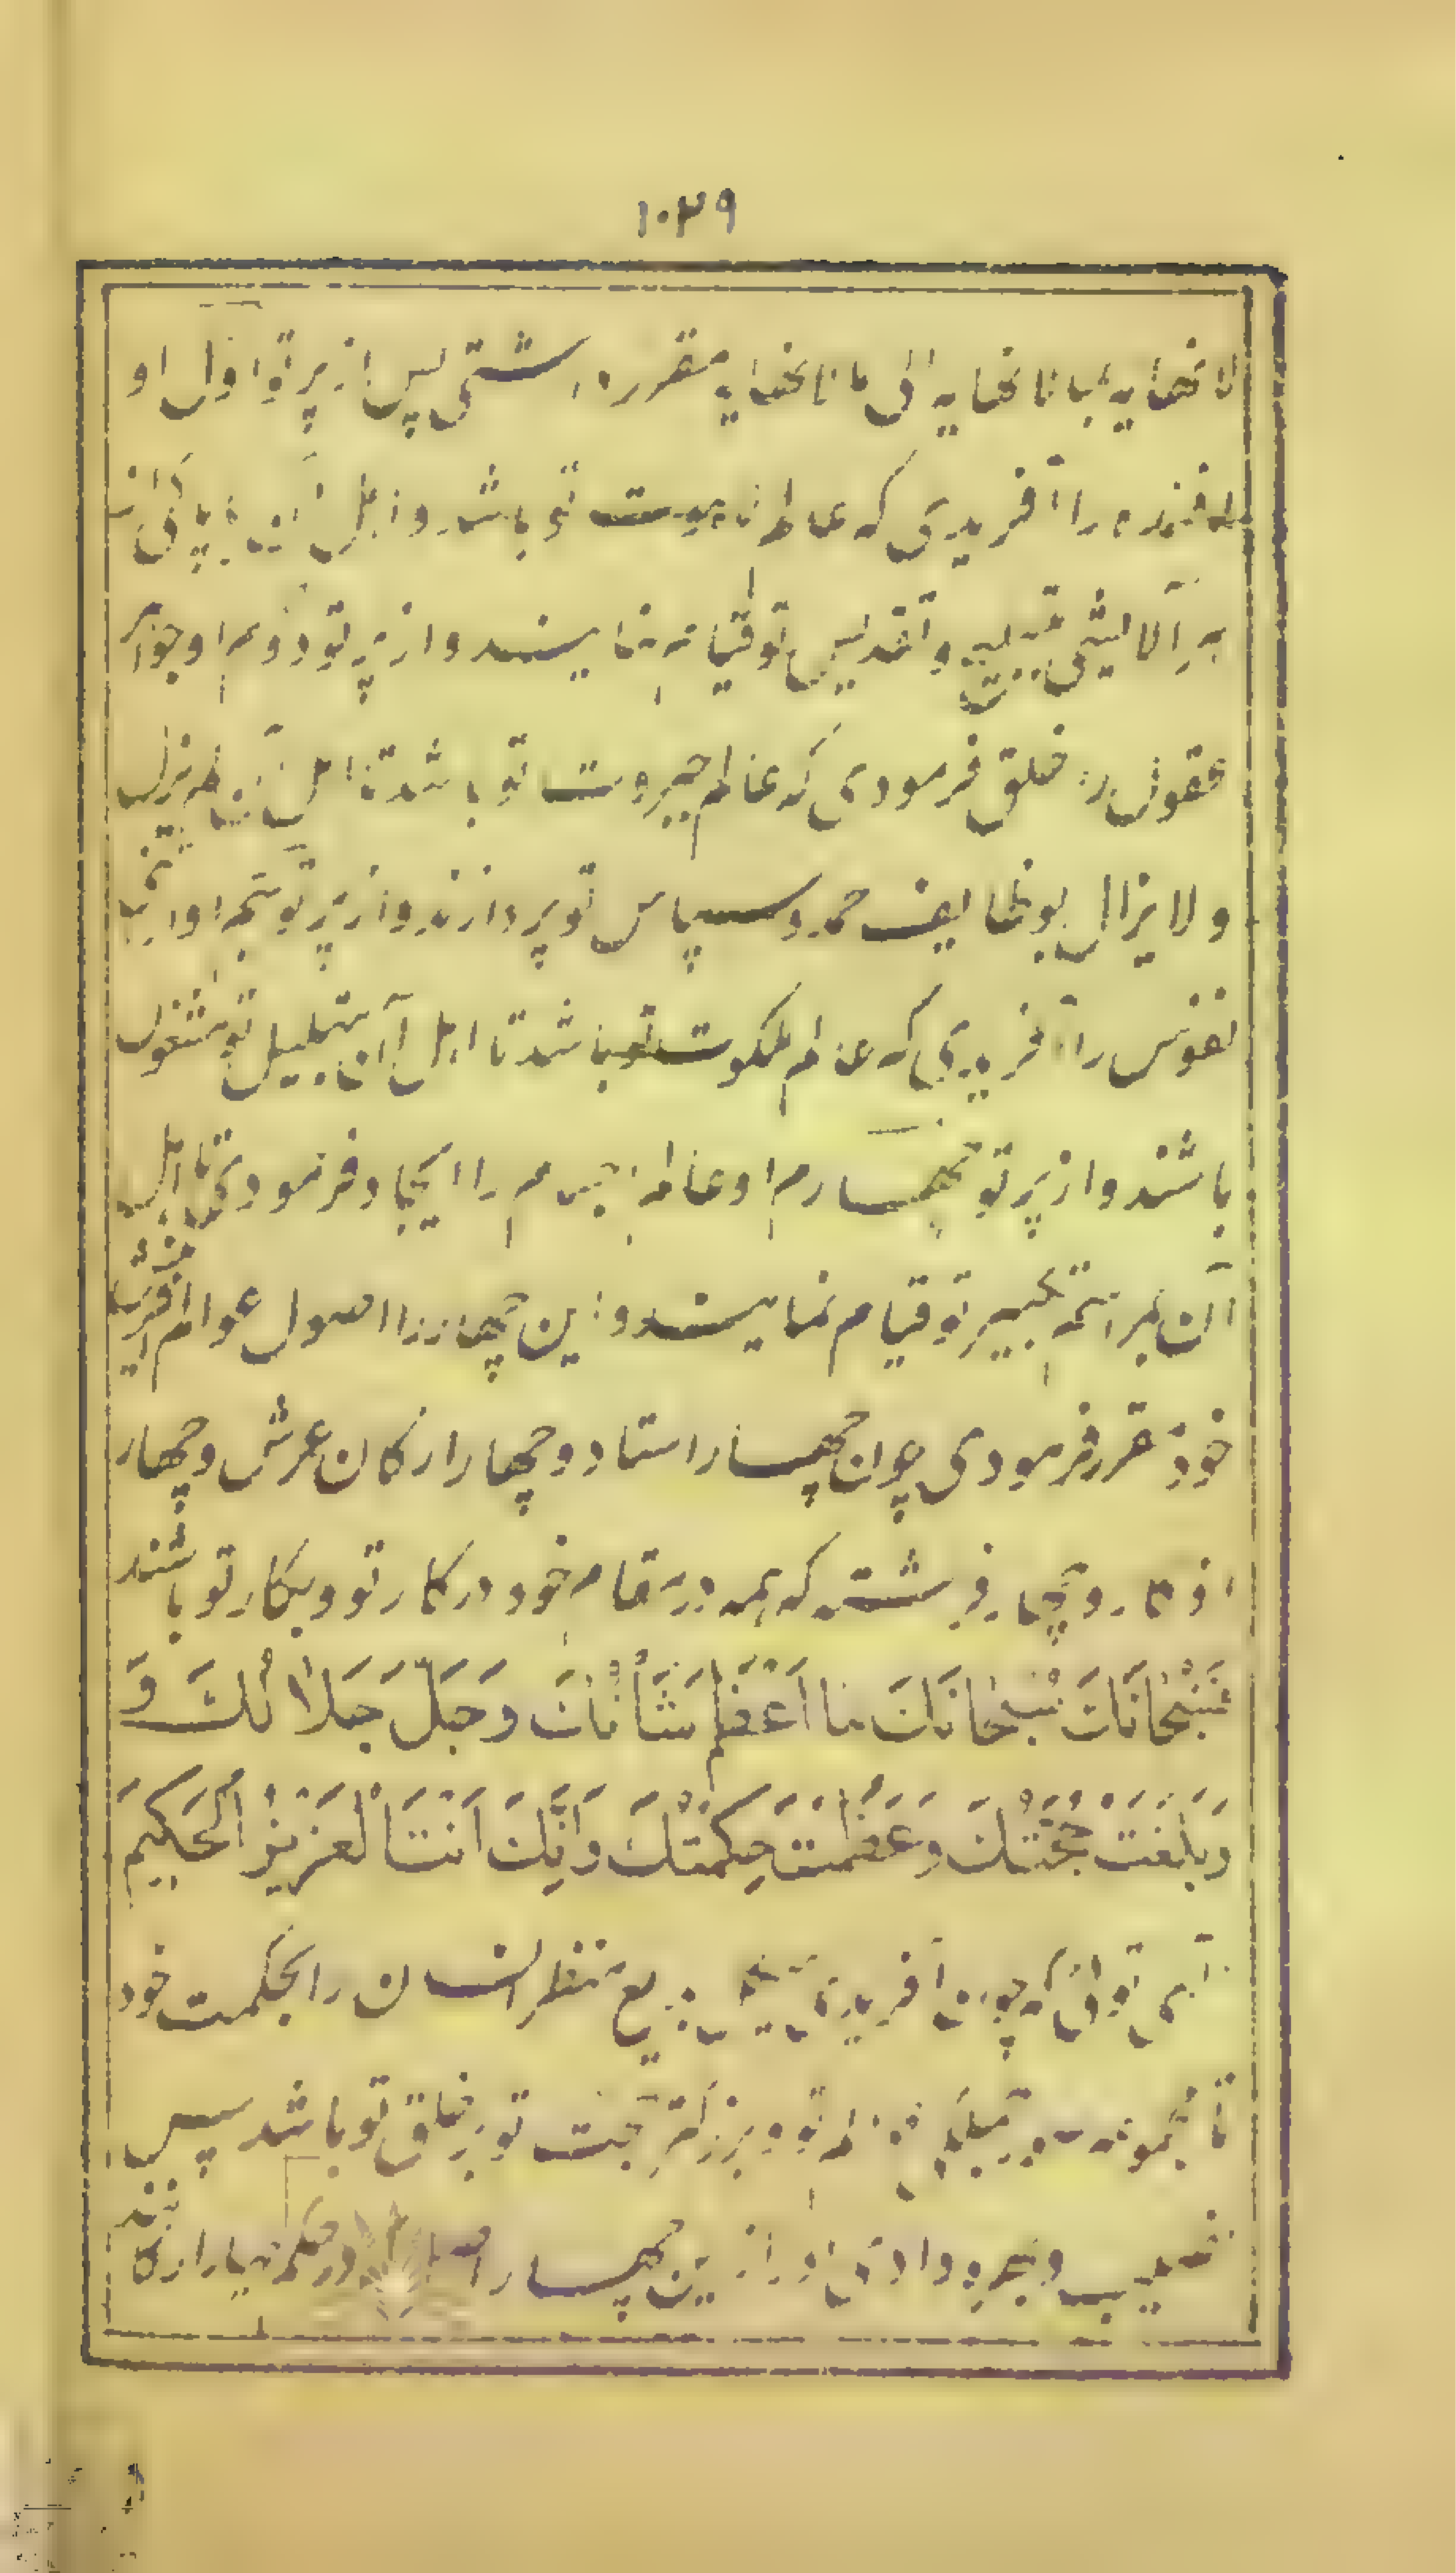 ۱۰۳۹
لا نهایه بما نانهایه الی ما نانهایه مقرر داشتی پس از پرتو اول او
افئده را آفریدی که عالم لاهوت تو باشد و اهل آن
تسبیح و تقدیس تو قیام نمایند و از پرتو دوم او جواهر
عقول را خلق فرمودی که عالم جبروت تو باشد تا اهل آن لم یزل
و لا یزال بوظایف حمد و سپاس تو پردازند و از پرتو سیم او
نفوس را آفریدی که عالم ملکوت تو باشد تا اهل آن بتهلیل تو مشغول
باشند و از پرتو چهارم او عالم اجسام را ایجاد فرمودی تا اهل
آن بمراسم تکبیر تو قیام نمایند و این چهار را اصول عوالم آفرینش
خود مقرر فرمودی چون چهار استاد و چهار ارکان عرش و چهار
اذکار و چهار فرشته که همه در مقام خود در کار تو و بکار تو باشند
فَسُبْحانَكَ سُبْحانَكَ ما اَعْظَمَ شَأْنَكَ وَجَلَّ جَلالُكَ وَ
وَبَلَغَتْ حُجَّتُكَ وَعَظُمَتْ حِكْمَتُكَ وَاِنَّكَ اَنْتَ الْعَزيزُ الْحَكيمُ
توئی که چون آفریدی بدیع منظر انسان را بحکمت خود
تا نمونه عوالم تو و بزرگتر حجت تو بر خلق تو باشد سپس
نصیب و بهره دادی او را از این چهار